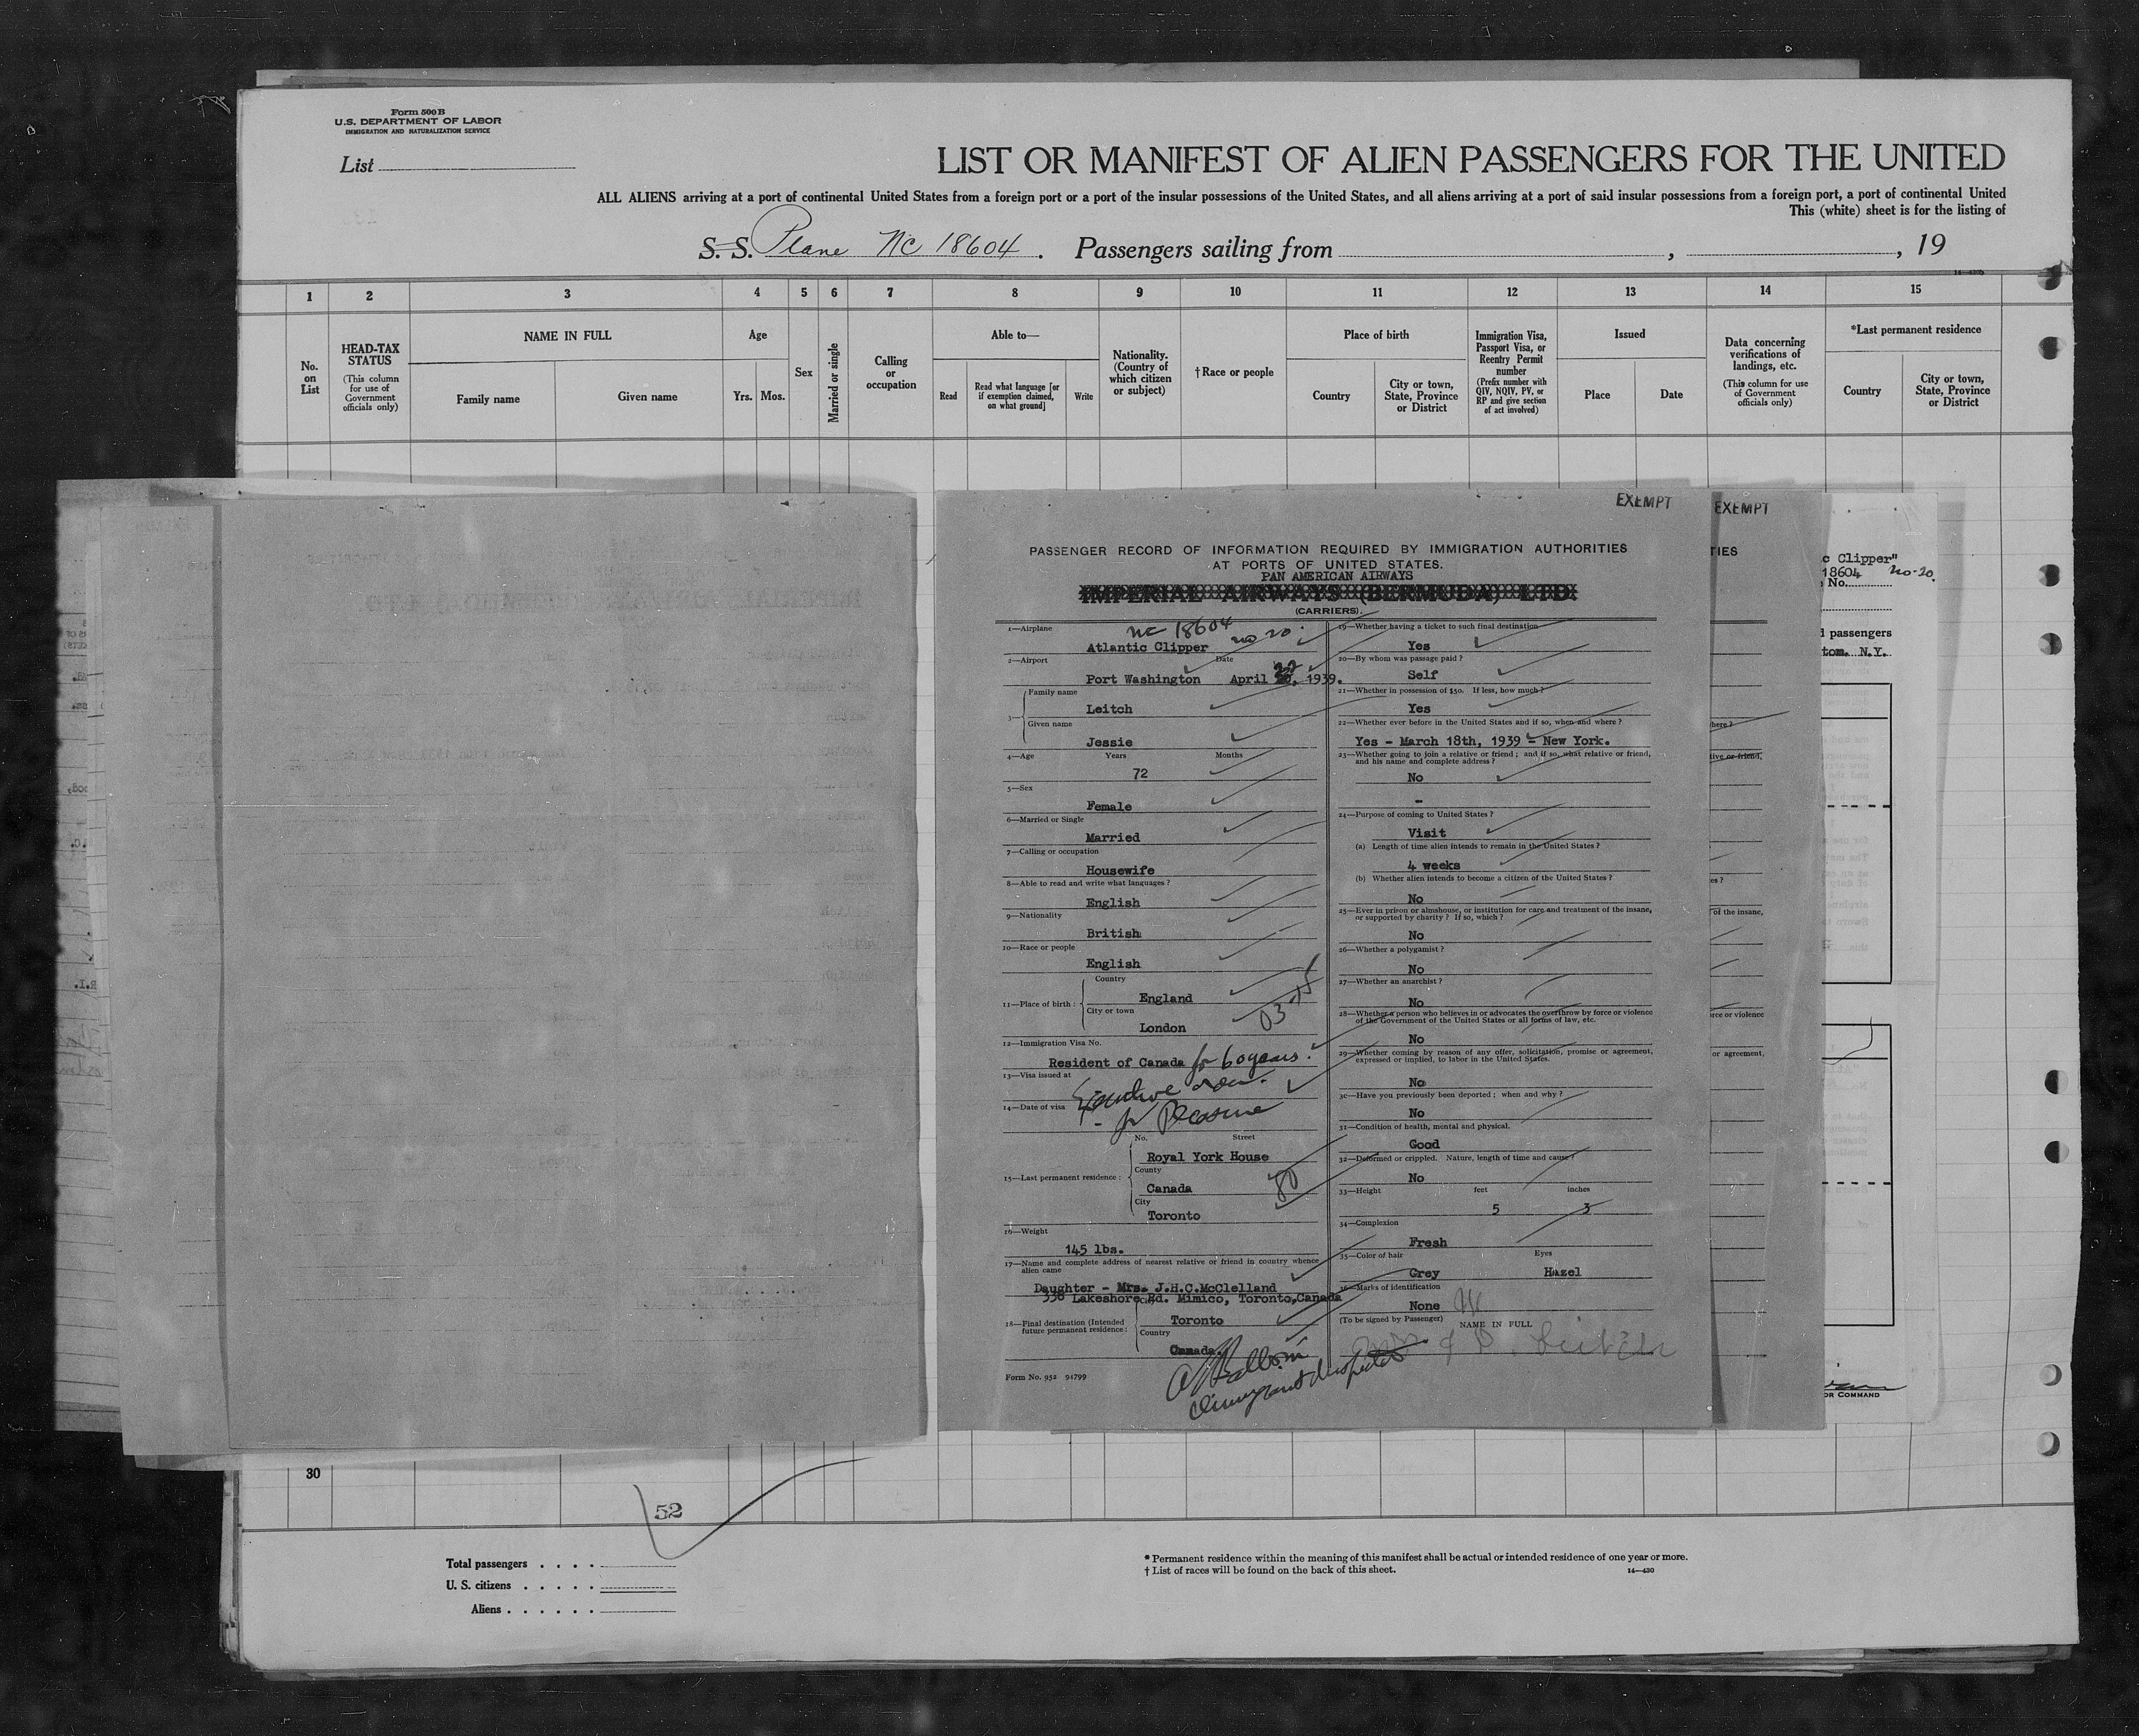 Form 500B
U.S. DEPARTMENT OF LABOR
IMMIGRATION AND NATURALIZATION SERVICE
List
LIST OR MANIFEST OF ALIEN PASSENGERS FOR THE UNITED
ALL ALIENS arriving at a port of continental United States from a foreign port or a port of the insular possessions of the United States, and all aliens arriving at a port of said insular possessions from a foreign port, a port of continental United
This (white) sheet is for the listing of
S. S. Plane NC 18604. Passengers sailing from , , 19
14—430
1 2 3 4 5 6 7 8 9 10 11 12 13 14 15
No. on List
HEAD-TAX STATUS
(This column for use of Government officials only)
NAME IN FULL
Family name
Given name
Age
Yrs. Mos.
Sex
Married or single
Calling or occupation
Able to—
Read
Read what language [or if exemption claimed, on what ground]
Write
Nationality. (Country of which citizen or subject)
† Race or people
Place of birth
Country
City or town, State, Province or District
Immigration Visa, Passport Visa, or Reentry Permit number
(Prefix number with QIV, NQIV, PV, or RP and give section of act involved)
Issued
Place
Date
Data concerning verifications of landings, etc.
(This column for use of Government officials only)
*Last permanent residence
Country
City or town, State, Province or District
EXEMPT
PASSENGER RECORD OF INFORMATION REQUIRED BY IMMIGRATION AUTHORITIES
AT PORTS OF UNITED STATES.
PAN AMERICAN AIRWAYS
IMPERIAL AIRWAYS (BERMUDA) LTD.
(CARRIERS).
1—Airplane
NC 18604 no 20.
Atlantic Clipper
2—Airport Date
Port Washington April 22, 1939.
3—
Family name
Leitch
Given name
Jessie
4—Age Years Months
72
5—Sex
Female
6—Married or Single
Married
7—Calling or occupation
Housewife
8—Able to read and write what languages ?
English
9—Nationality
British
10—Race or people
English
11—Place of birth :
Country
England
City or town
London
12—Immigration Visa No.
Resident of Canada for 60 years.
13—Visa issued at
Executive order.
14—Date of visa
- for Pleasure
15—Last permanent residence :
No. Street
Royal York House
County
Canada
80
City
Toronto
16—Weight
145 lbs.
17—Name and complete address of nearest relative or friend in country whence alien came
Daughter - Mrs. J.H.C.McClelland
338 Lakeshore Rd. Mimico, Toronto,Canada
18—Final destination (Intended future permanent residence :
City
Toronto
Country
Canada.
Immigrant Inspector
Form No. 952 94799
19—Whether having a ticket to such final destination
Yes
20—By whom was passage paid ?
Self
21—Whether in possession of $50. If less, how much ?
Yes
22—Whether ever before in the United States and if so, when and where ?
Yes - March 18th, 1939 - New York.
23—Whether going to join a relative or friend ; and if so, what relative or friend,
and his name and complete address ?
No
-
24—Purpose of coming to United States ?
Visit
(a) Length of time alien intends to remain in the United States ?
4 weeks
(b) Whether alien intends to become a citizen of the United States ?
No
25—Ever in prison or almshouse, or institution for care and treatment of the insane,
or supported by charity ? If so, which ?
No
26—Whether a polygamist ?
No
27—Whether an anarchist ?
No
28—Whether a person who believes in or advocates the overthrow by force or violence
of the Government of the United States or all forms of law, etc.
No
29—Whether coming by reason of any offer, solicitation, promise or agreement,
expressed or implied, to labor in the United States.
No
30—Have you previously been deported ; when and why ?
No
31—Condition of health, mental and physical.
Good
32—Deformed or crippled. Nature, length of time and cause ?
No
33—Height feet inches
5 3
34—Complexion
Fresh
35—Color of hair Eyes
Grey Hazel
36—Marks of identification
None
(To be signed by Passenger) NAME IN FULL
EXEMPT
TIES
here ?
tive or friend,
es ?
of the insane,
rce or violence
or agreement,
c Clipper"
18604 no-20.
No.
d passengers
tom. N.Y.
OR COMMAND
30
52
Total passengers
U. S. citizens
Aliens
* Permanent residence within the meaning of this manifest shall be actual or intended residence of one year or more.
† List of races will be found on the back of this sheet.
14—430